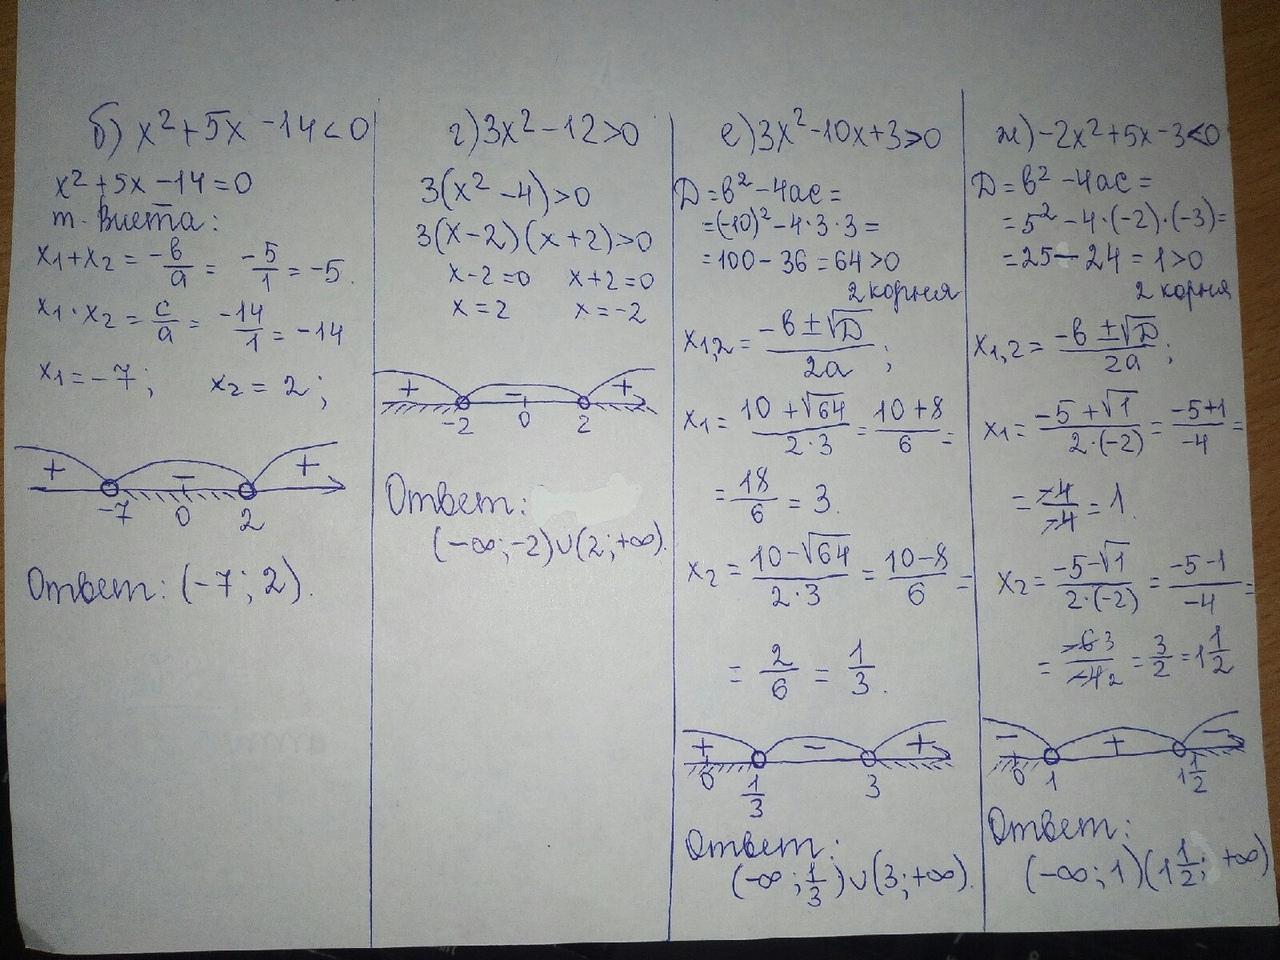 б) x²+5x-14<0
x²+5x-14=0
т. Виета:
x₁+x₂ = -в/a = -5/1 = -5.
x₁·x₂ = c/a = -14/1 = -14
x₁=-7; x₂=2;
+ - +
-7 0 2
Ответ: (-7; 2).
г) 3x²-12>0
3(x²-4)>0
3(x-2)(x+2)>0
x-2=0 x+2=0
x=2 x=-2
+ - +
-2 0 2
Ответ:
(-∞;-2)∪(2;+∞).
е) 3x²-10x+3>0
Д=в²-4ac=
=(-10)²-4·3·3=
=100-36=64>0
2 корня
x₁,₂ = (-в±√Д)/2a;
x₁ = (10+√64)/(2·3) = (10+8)/6 =
= 18/6 = 3.
x₂ = (10-√64)/(2·3) = (10-8)/6 =
= 2/6 = 1/3.
+ - +
0 1/3 3
Ответ:
(-∞; 1/3)∪(3;+∞).
ж) -2x²+5x-3<0
Д=в²-4ac=
=5²-4·(-2)·(-3)=
=25-24=1>0
2 корня
x₁,₂ = (-в±√Д)/2a;
x₁ = (-5+√1)/(2·(-2)) = (-5+1)/-4 =
= -4/-4 = 1.
x₂ = (-5-√1)/(2·(-2)) = (-5-1)/-4 =
= -6 3/-4 2 = 3/2 = 1 1/2
- + -
0 1 1 1/2
Ответ:
(-∞; 1)(1 1/2; +∞)